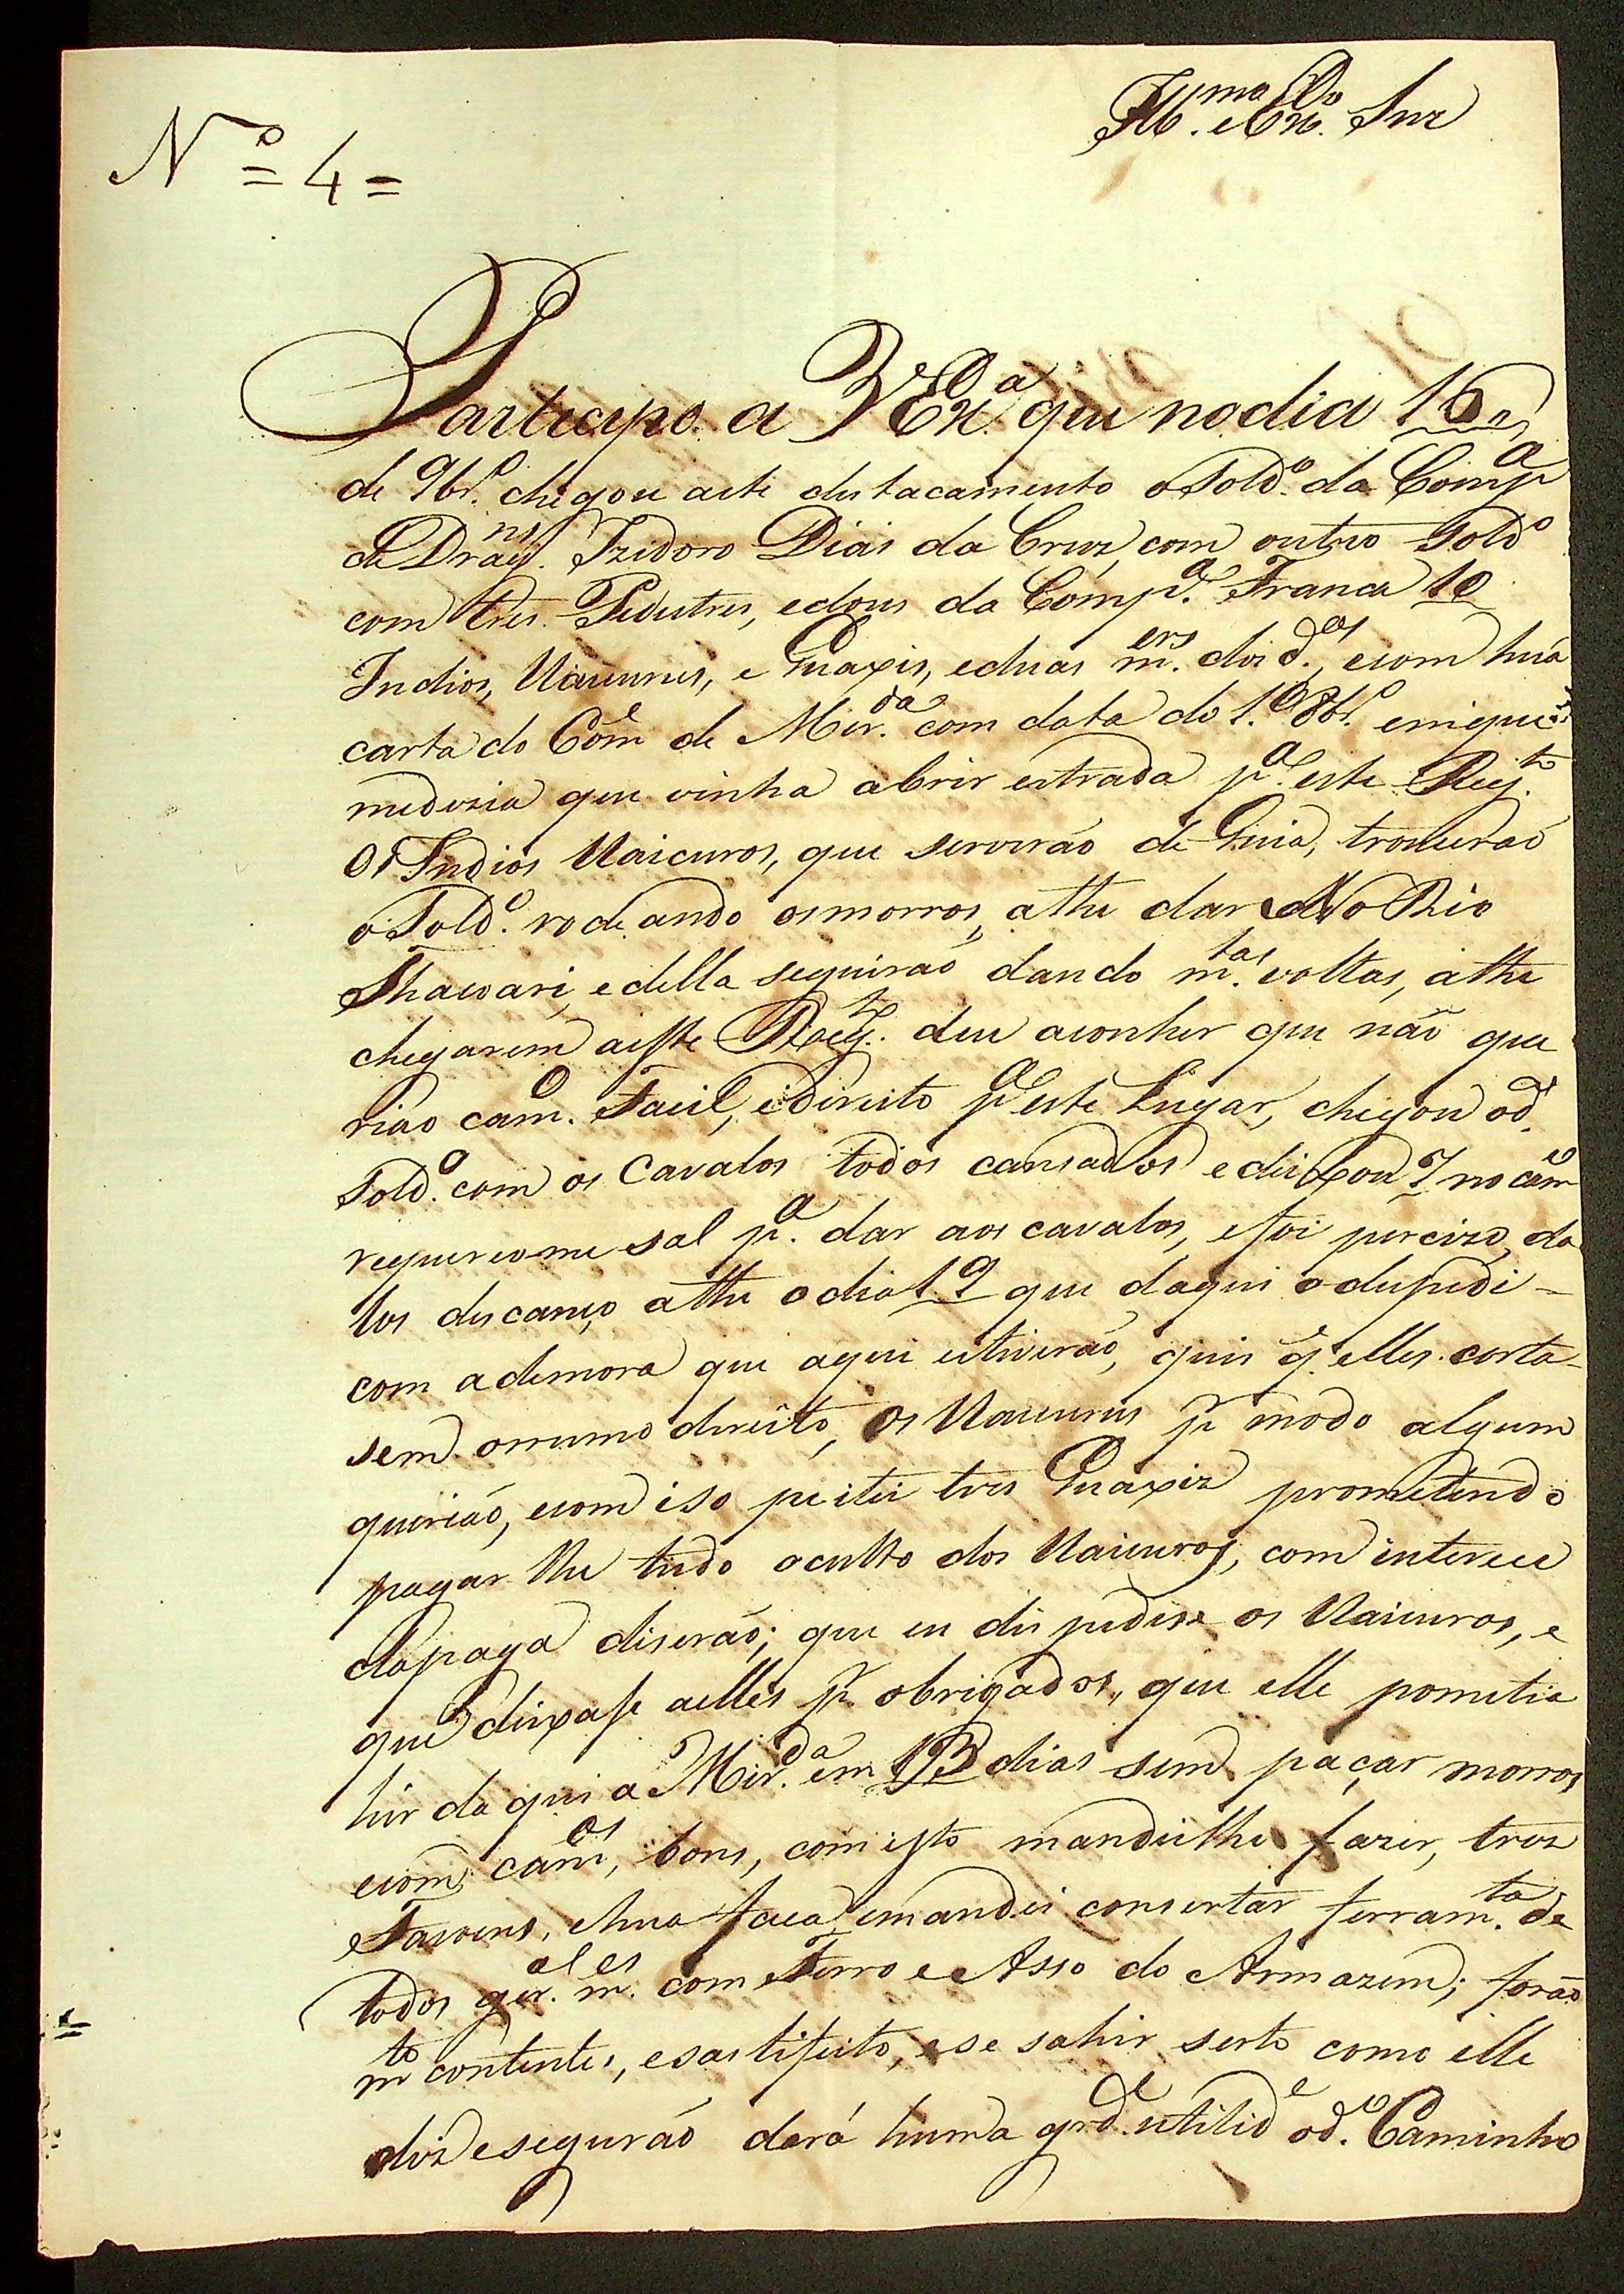 Ill.mo e Ex.mo Snr
Nº = 4 =
Partecipo a V Ex.a que no dia 16
de 9br.o chegou aeste destacamento o Sold.o da Comp.a
de Drag.ns Izidoro Dias da Cruz, com outro Sold.o
com tres Pedestres, edous da Comp.a Franca 10
Indios, Uaicurus, e Guaxis, eduas m.ers dos d.os, ecom huã
carta do Com.e de Mir.da com data do 1.o 8br.o emque
medizia que vinha abrir estrada p.a este Reg.to
Os Indios Uaicuros, que servirão de Guia, trouxerão
o Sold.o rodeando osmorros, athe dar No Rio
edella seguirão dando m.tas voltas, athe
chegarem aeste Reg.to deu aconher que não que
rião cam.o Facil, edireito p.a este Lugar, chegou od.o
Sold.o com os Cavalos todos cansados edeixou 7 no cam.o
requereome sal p.a dar aos cavalos, efoi percizo, da
los descanço athe odia 19 que daqui odespedi -
com ademora que aqui estiverão, quis q̃ elles corta-
sem orrumo direito, Os Uaicurus p.r modo algum
querião, ecom iso peitei tres Guaxis prometendo
pagar lhe tudo oculto dos Uaicuros, com interece
dapaga diserão; que eu dispedise os Uaicuros, e
que deixase aelles p.r obrigados, que elle prometia
hir daqui a Mir.da em 13 dias sem paçar morros
ecom cam.os bons, com isto mandeilhe fazer, tres
Facoens, ehua faca, emandei consertar ferram.ta de
todos ger.al m.es com Ferro e Asso do Armazem; forão
m.to contentes, esastifeito, ese sahir serto como elle
diz esegurão dará huma grd.e utilid.e od.o Caminho